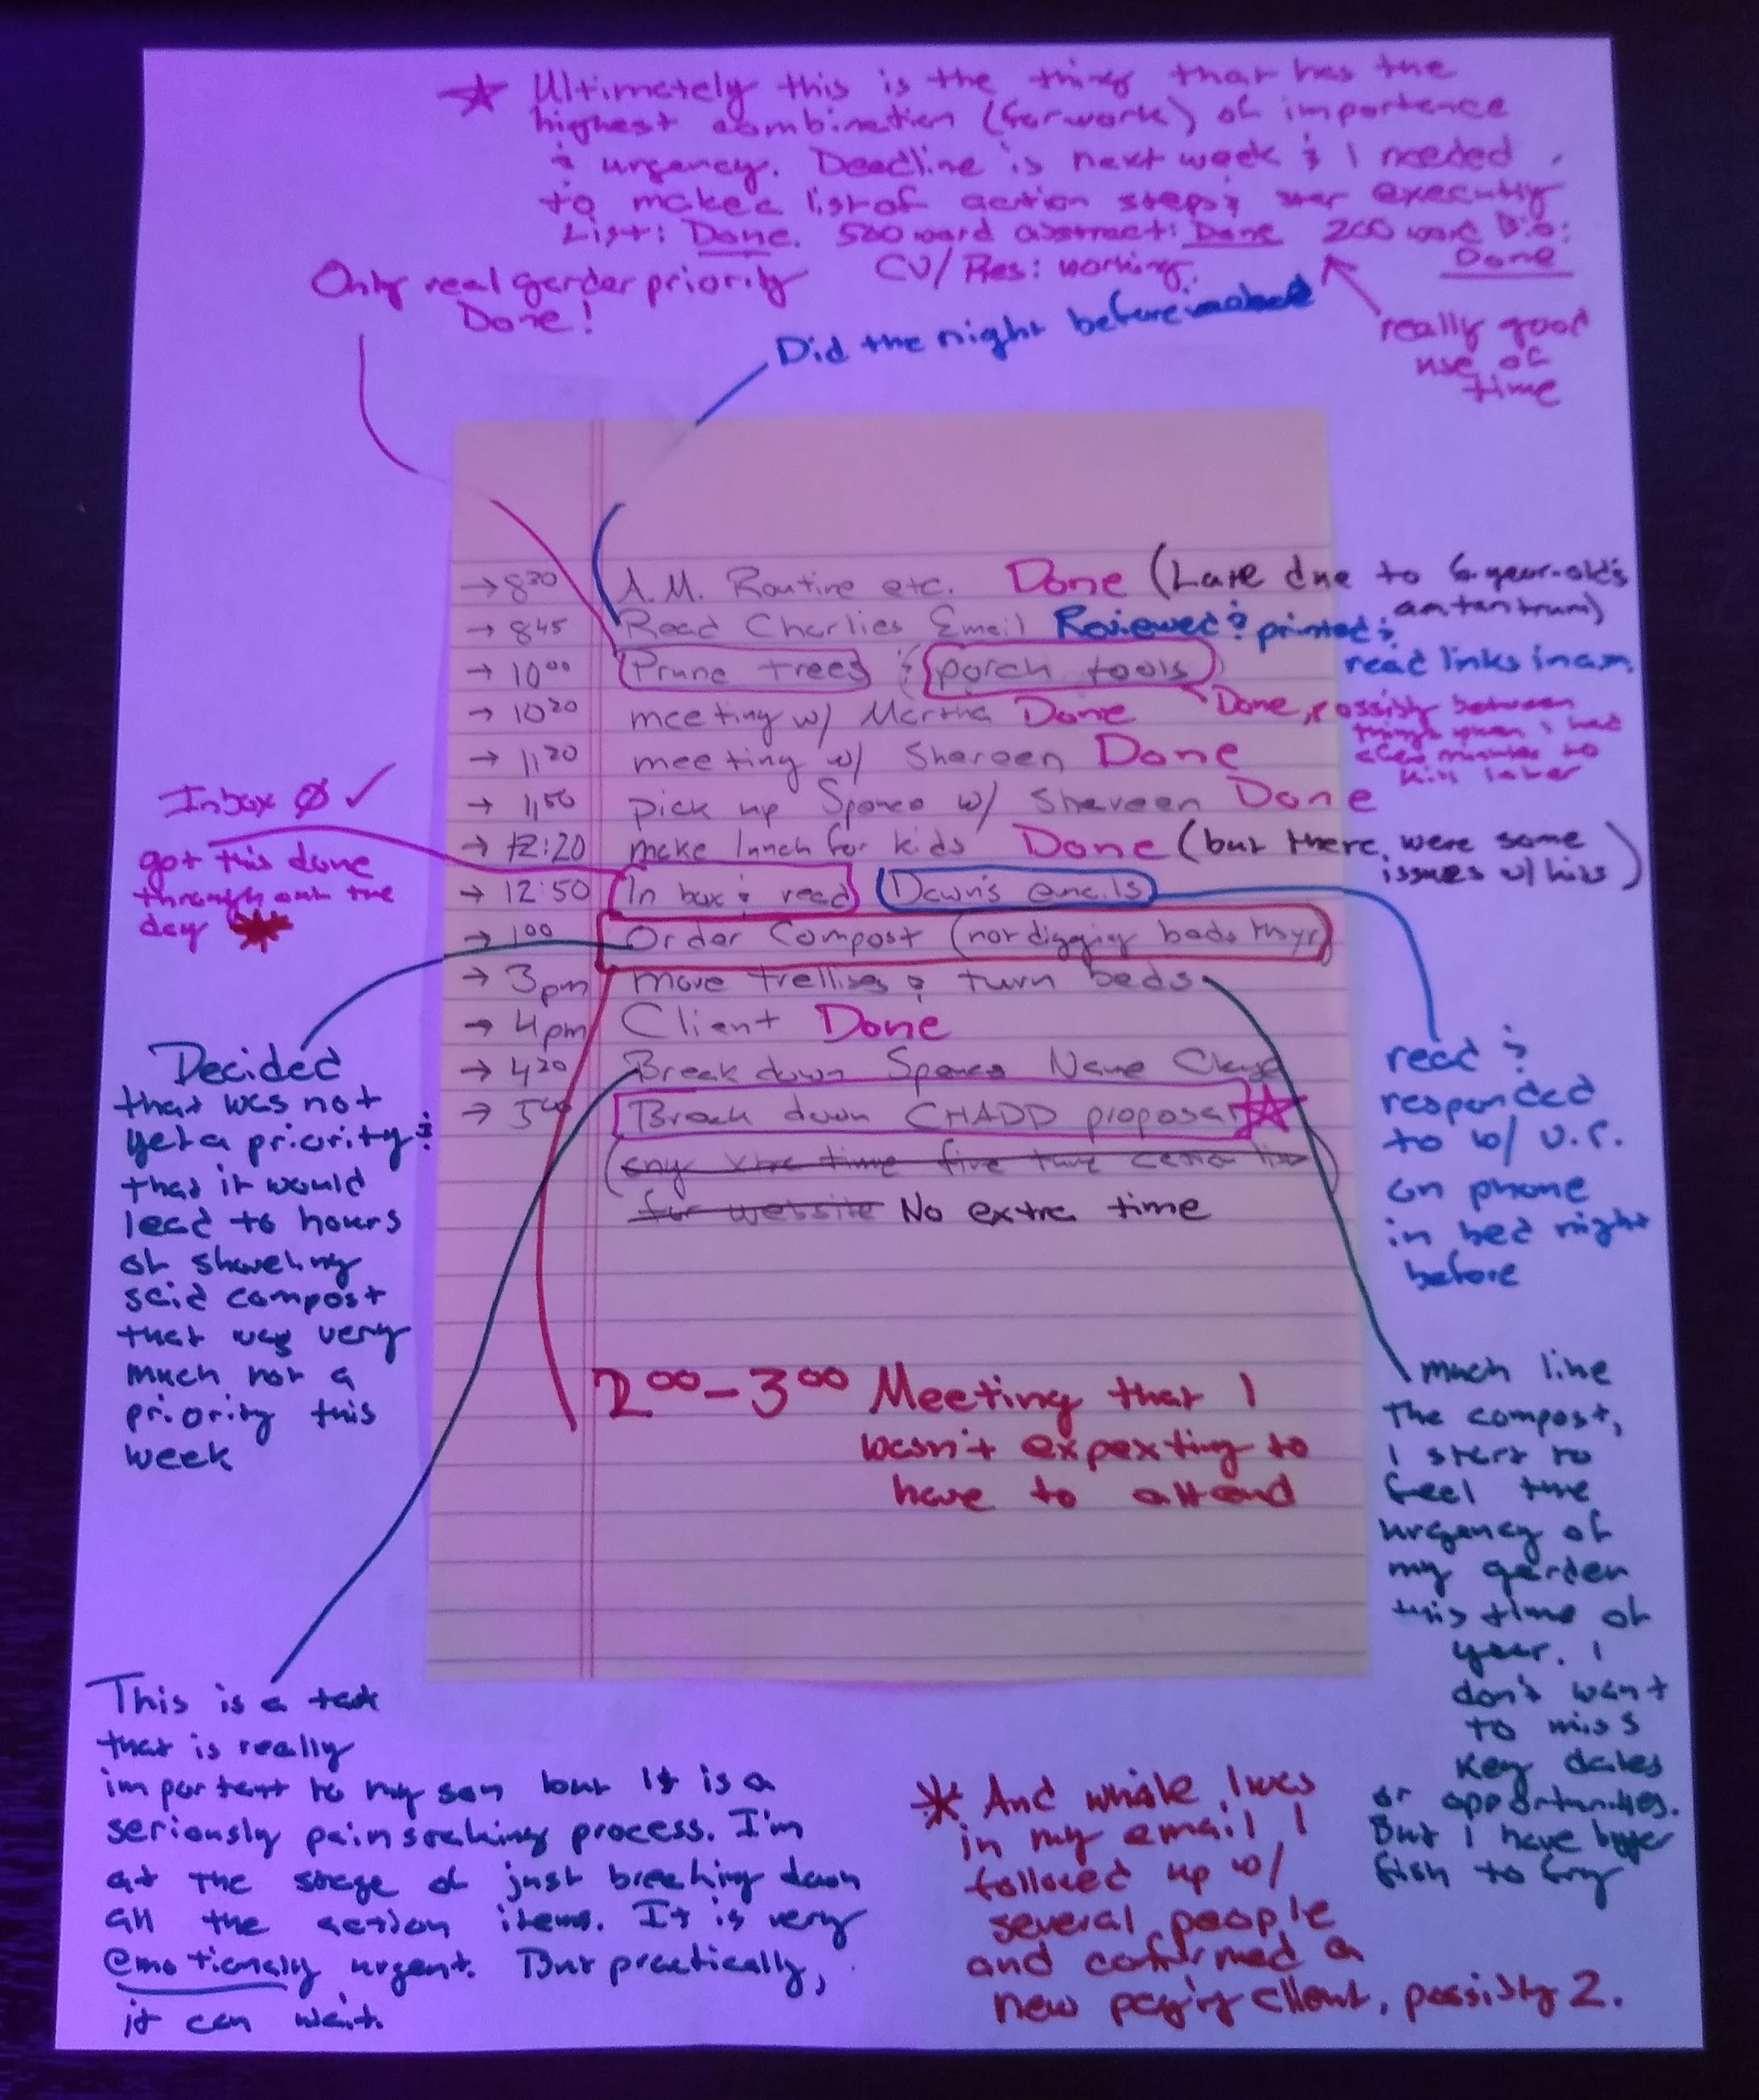 ★ Ultimately this is the thing that has the
highest combination (for work) of importance
& urgency. Deadline is next week & I needed
to make a list of action steps & start executing
List: Done. 500 word abstract: Done 200 word Bio:
Done
CV/Res: working.
really good
use of
time
Only real garden priority
Done!
Did the night before
→ 8:30 A.M. Routine etc. Done (Late due to 6-year-old's
am tantrum)
→ 8:45 Read Charlies Email Reviewed & printed &
read links in am.
→ 10:00 Prune trees & porch tools
→ 10:20 meeting w/ Martha Done
Done, possibly between
things when I had
a few minutes to
kill later
→ 11:20 meeting w/ Shareen Done
→ 11:50 pick up Spanco w/ Shareen Done
→ 12:20 make lunch for kids Done (but there were some
issues w/ this)
→ 12:50 In box & read Dawn's emails
→ 1:00 Order Compost (not digging beds thyr)
→ 3pm move trellises & turn beds
→ 4pm Client Done
→ 4:20 Break down Name Change
→ Break down CHADD proposal ★
(any xtra time five time
for website No extra time
2:00-3:00 Meeting that I
wasn't expexting to
have to attend
Inbox Ø ✓
got this done
throughout the
day ✱
Decided
that was not
yet a priority &
that it would
lead to hours
of shoveling
said compost
that was very
much not a
priority this
week
read &
responded
to w/
on phone
in bed night
before
much like
the compost,
I start to
feel the
urgency of
my garden
this time of
year. I
don't want
to miss
key dates
or opportunities.
But I have bigger
fish to fry
This is a task
that is really
important to my son but it is a
seriously painstaking process. I'm
at the stage of just breaking down
all the action items. It is very
emotionally urgent. But practically,
it can wait.
✱ And while I was
in my email I
followed up w/
several people
and confirmed a
new paying client, possibly 2.